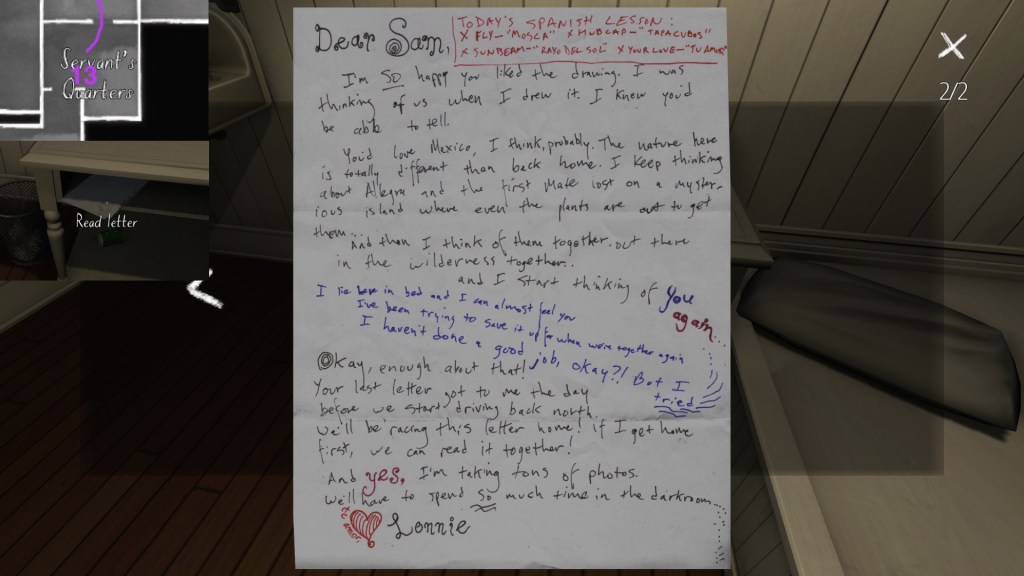 Servant's
13
Quarters
Read letter
2/2
Dear Sam,
TODAY'S SPANISH LESSON:
x FLY-"MOSCA" x HUBCAP-"TAPACUBOS"
x SUNBEAM-"RAYO DEL SOL" x YOUR LOVE-"TU AMOR"
I'm SO happy you liked the drawing. I was
thinking of us when I drew it. I knew you'd
be able to tell.
You'd love Mexico, I think, probably. The nature here
is totally different than back home. I keep thinking
about Allegra and the First Mate lost on a myster-
ious island where even the plants are out to get
them...
And then I think of them together. out there
in the wilderness together.
and I start thinking of you
again...
I lie here in bed and I can almost feel you
I've been trying to save it up for when we're together again
I haven't done a good job, okay?! But I
tried
Okay, enough about that!
Your last letter got to me the day
before we start driving back north.
We'll be racing this letter home! if I get home
first, we can read it together!
And yes, I'm taking tons of photos.
We'll have to spend so much time in the darkroom...
Lonnie